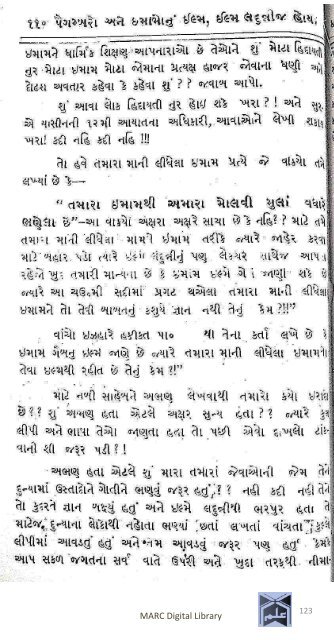 ૧૧૦ પેગમ્બરો અને ઇમામોનું ઇલ્મ, ઇલ્મ લદુન્નીજ હોય,
ઇમામને ધાર્મિક શિક્ષણ આપનારાઓ છે તેઓને શું મોટા હિદાયતી
નુર મોટા ઇમામ મોટા જોમાના પ્રત્યક્ષ હાજર જોવાના ધણી અને
અવતાર કહેવા કે કહેવા શું ? ? જવાબ આપો.
શું આવા લોક હિદાયતી નુર હોઇ શકે ખરા ? ! અને સુર
એ યાસીનની ૧૨મી આયાતના અધિકારી, આવાઓને લેખી શકાય
ખરા! કદી નહિ કદી નહિ !!!
તો હવે તમારા માની લીધેલા ઇમામ પ્રત્યે જે વાક્યો તમે
લખ્યાં છે કે—
“ તમારા ઇમામથી અમારા મોલવી મુલાં વધારે
ભણેલા છે”—આ વાક્યો અક્ષરો અક્ષરે સાચા છે કે નહિ? ? માટે તમે
તમારા માની લીધેલા ઇમામ તરીકે જ્યારે જાહેર કરવા
માટે બહાર પડો ત્યારે પણ લેક્ચર સાથેજ આપતા
રહેજો ખુદ તમારી માન્યતા છે કે ઇમામ ઇલ્મે જાણી શકે છે
જ્યારે આ ચઉદમી સદીમાં પ્રગટ થએલા તમારા માની લીધેલા
ઇમામને તો તેવી બાબતનું કશુંયે જ્ઞાન નથી તેનું કેમ?!!”
વાંચો ઇઝહારે હકીકત પા૦ તેના કર્તા લખે છે કે
ઇમામ ગૈબનુ ઇલ્મ જાણે છે જ્યારે તમારા માની લીધેલા ઇમામતો
તેવા ઇલ્મથી રહીત છે તેનું કેમ?!”
માટે નબી સાહેબને અભણ લેખવાથી તમારા કયો ઇરાદો
છે?? શું અભણ હતા એટલે અક્ષર સુન્ય હતા ?? જ્યારે કુલ
લીપી અને ભાષા તેઓ જાણતા હતા તો પછી એવો દાખલો ટાંક-
વાની શી જરૂર પડી ? !
અભણ હતા એટલે શું મારા તમારાં જેવાઓની જેમ તેને
દુન્યામાં ઉસ્તાદોને ગોતીને ભણવું જરૂર હતું ?? નહી કદી નહી તેને
તો કુદરતે જ્ઞાન બક્ષ્યું હતું અને ઇલ્મે લદુન્નીથી ભરપુર હતા તે
માટેજ દુન્યાના લોકોથી નહોતા ભણ્યાં છતાં લખતાં વાંચતા કુલ
લીપીમાં આવડતું હતું અને તેમ આવડવું જરૂર પણ હતું કેમકે
આપ સકળ જગતના સર્વ વાતે ઉપરી અને ખુદા તરફથી નીમા
MARC Digital Library
123